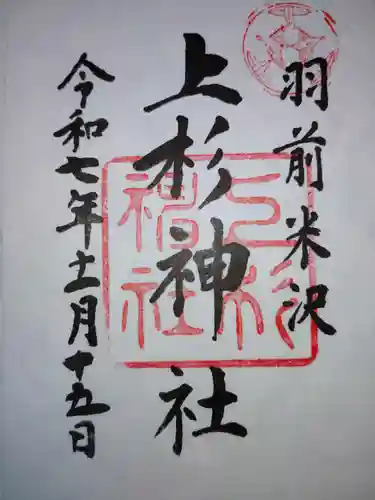 羽前米沢
上杉神社
令和七年十一月十五日
上杉
神社